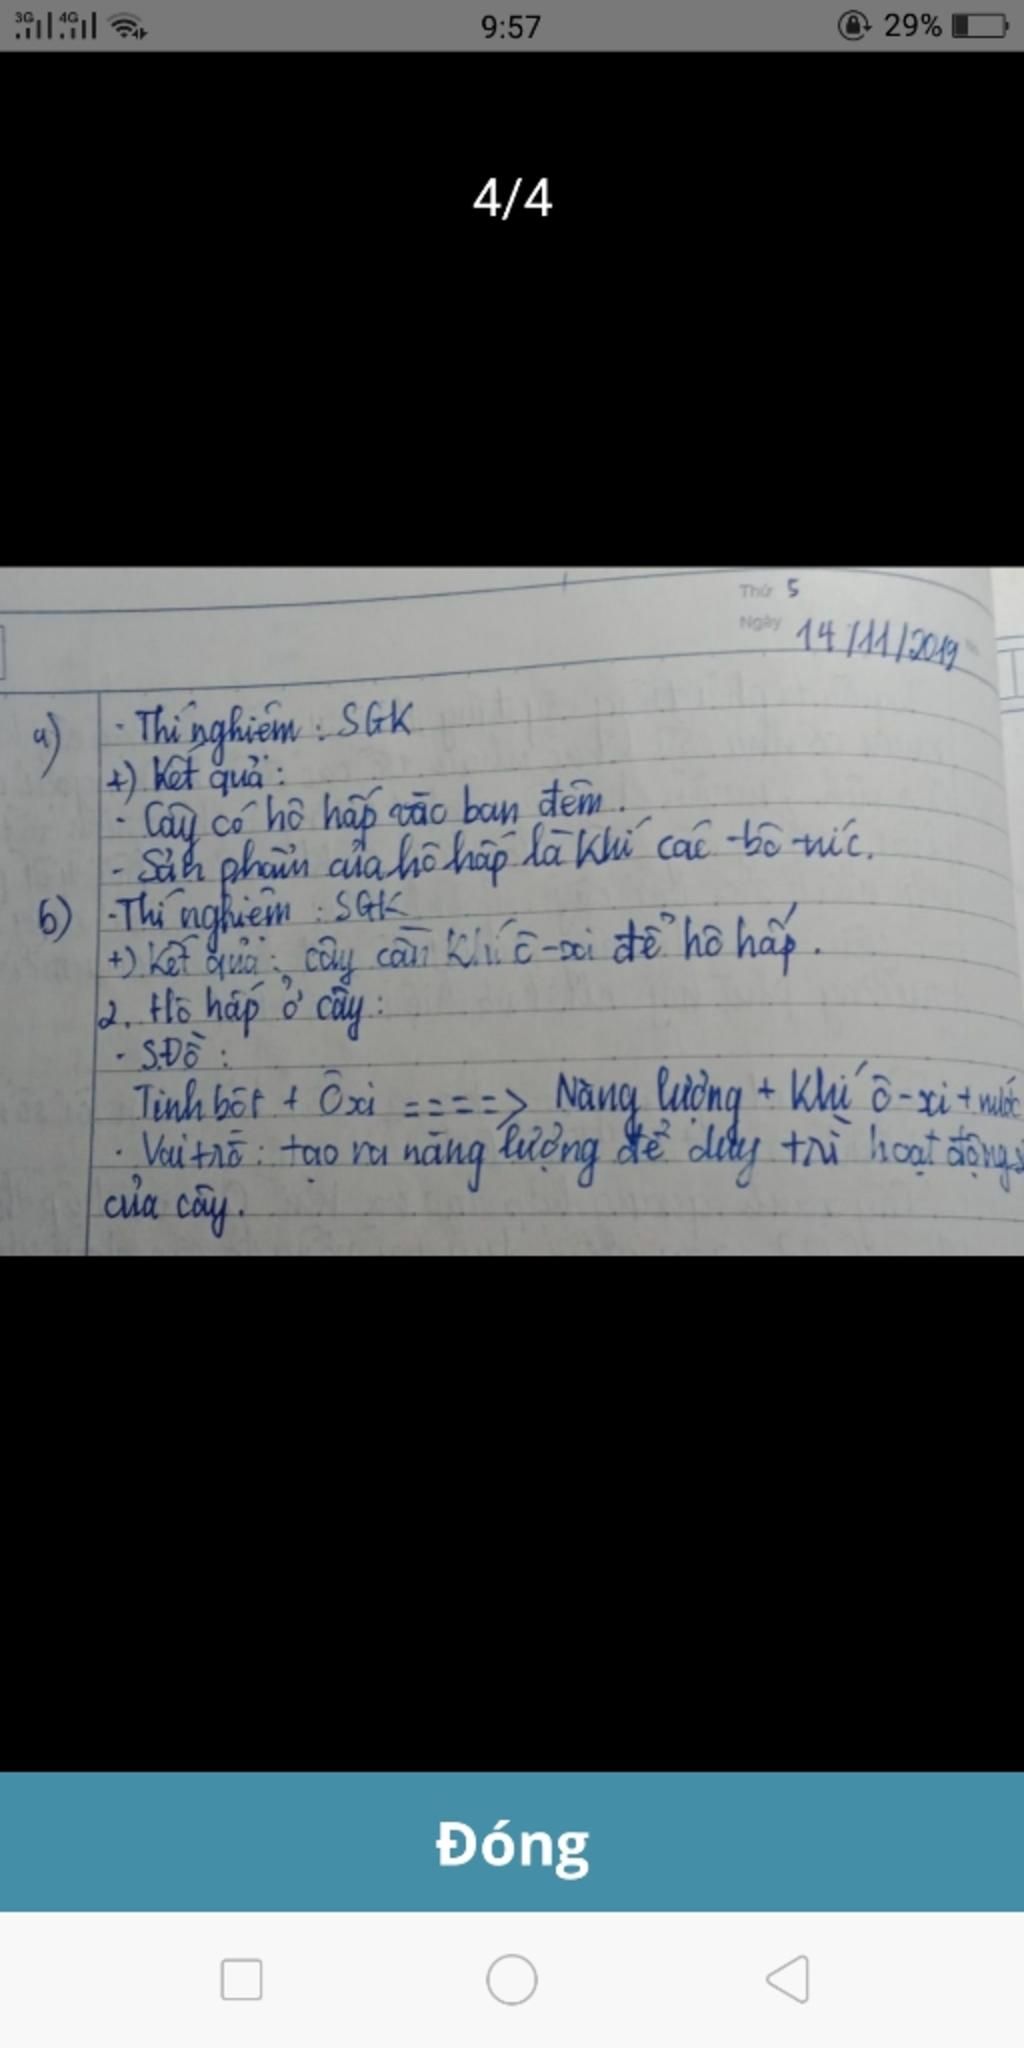 3G 4G 9:57 29%
4/4
Thứ 5
Ngày 14/11/2019
a) - Thí nghiệm : SGK
+) Kết quả :
- Cây có hô hấp vào ban đêm .
- Sản phẩm của hô hấp là khí các-bô-níc.
b) - Thí nghiệm : SGK
+) Kết quả : cây cần khí ô-xi để hô hấp .
2. Hô hấp ở cây :
- S.Đồ :
Tinh bột + Ôxi ====> Năng lượng + Khí ô-xi + nước
- Vai trò : tạo ra năng lượng để duy trì hoạt động
của cây .
Đóng